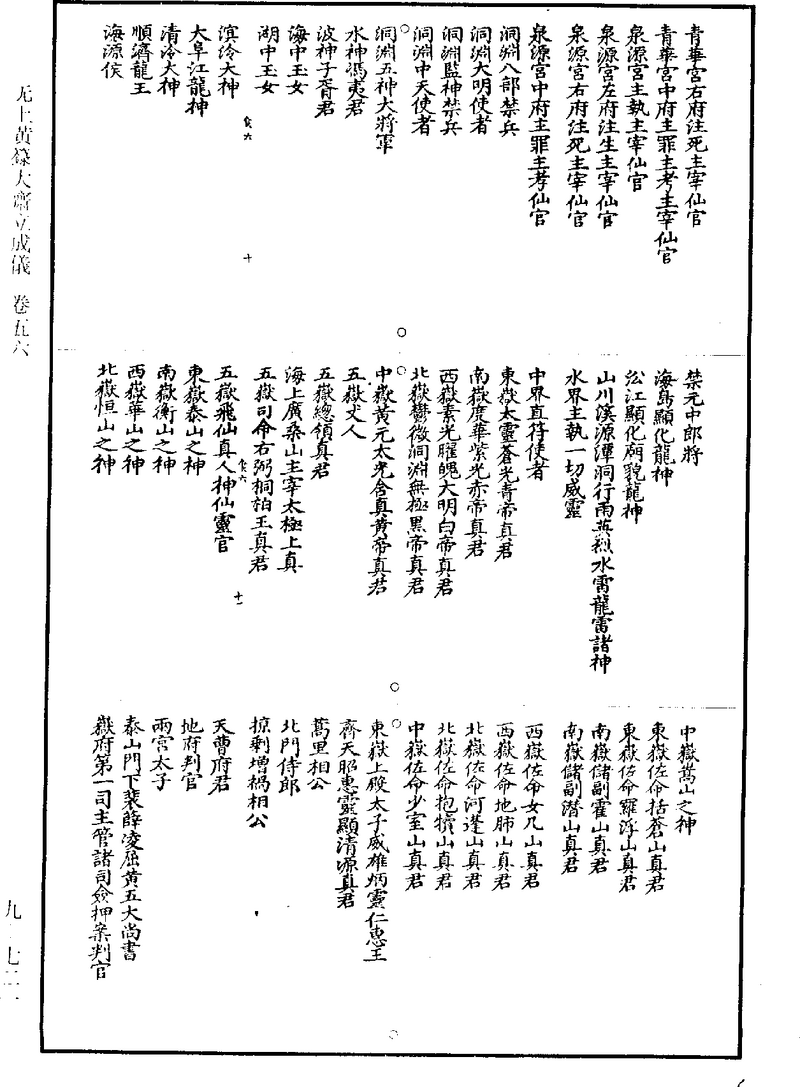 青華宮右府注死主宰仙官
青華宮中府主罪主考主宰仙官
泉源宮主執主宰仙官
泉源宮左府注生主宰仙官
泉源宮右府注死主宰仙官
泉源宮中府主罪主考仙官
洞淵八部禁兵
洞淵大明使者
洞淵監神禁兵
洞淵中天使者
洞淵五神大將軍
水神馮夷君
波神子胥君
海中玉女
湖中玉女
滨泠大神
大阜江龍神
清泠大神
順濟龍王
海源侯
禁元中郎將
海島顯化龍神
沿江顯化廟貌龍神
山川溪源潭洞行雨英烈水雷龍雷諸神
水界主執一切威靈
中界直符使者
東嶽太靈蒼光青帝真君
南嶽慶華紫光赤帝真君
西嶽素光曜魄大明白帝真君
北嶽鬱微洞淵無極黑帝真君
中嶽黃元太光含真黃帝真君
五嶽丈人
五嶽總領真君
海上廣桑山主宰太極上真
五嶽司命右弼桐柏王真君
五嶽飛仙真人神仙靈官
東嶽泰山之神
南嶽衡山之神
西嶽華山之神
北嶽恒山之神
中嶽嵩山之神
東嶽佐命括蒼山真君
東嶽佐命羅浮山真君
南嶽儲副霍山真君
南嶽儲副潜山真君
西嶽佐命女几山真君
西嶽佐命地肺山真君
北嶽佐命河逢山真君
北嶽佐命抱犢山真君
中嶽佐命少室山真君
東嶽上殿太子威雄炳靈仁惠王
齊天昭惠靈顯清源真君
蒿里相公
北門侍郎
掠剩增禍相公
天曹府君
地府判官
兩宮太子
泰山門下裴薛凌屈黄五大尚書
嶽府第一司主管諸司僉押案判官
无上黄籙大齋立成儀 卷五六